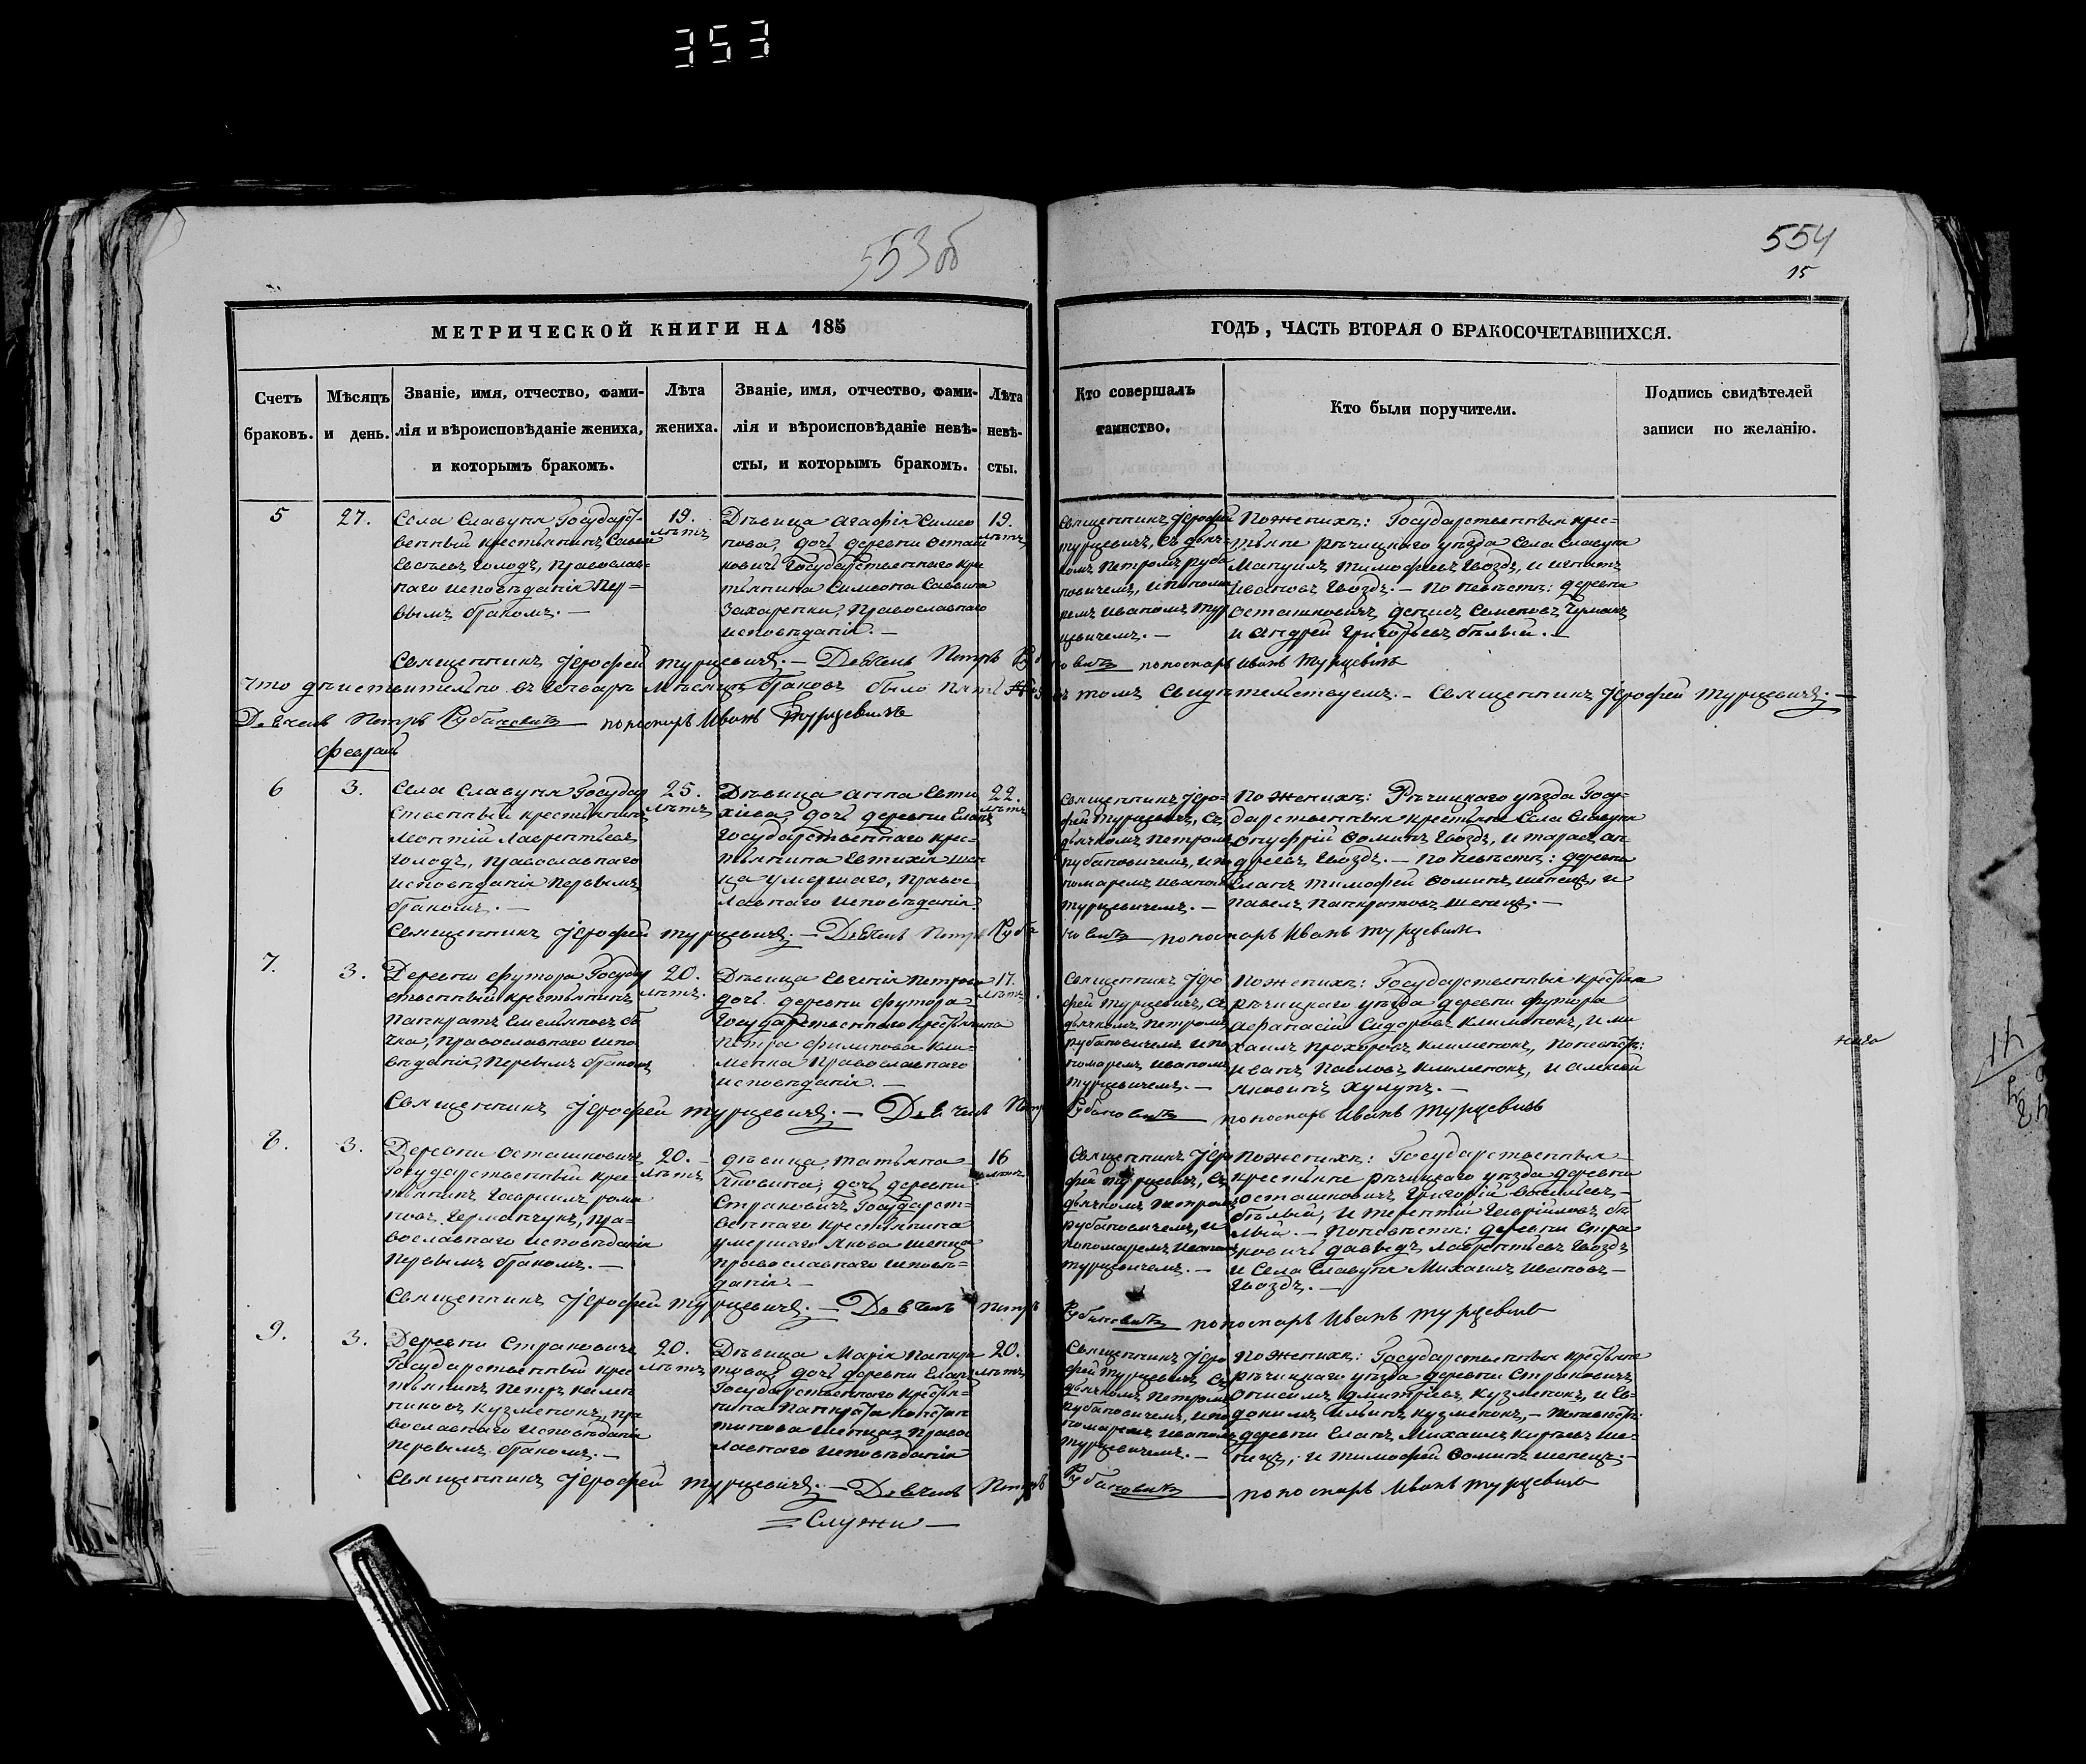 353
553об
554
15
МЕТРИЧЕСКОЙ КНИГИ НА 185
ГОДЪ, ЧАСТЬ ВТОРАЯ О БРАКОСОЧЕТАВШИХСЯ.
Счетъ
браковъ.
Мѣсяцъ
и день.
Званіе, имя, отчество, фами-
лія и вѣроисповѣданіе жениха,
и которымъ бракомъ.
Лѣта
жениха.
Званіе, имя, отчество, фами-
лія и вѣроисповѣданіе невѣ-
сты, и которымъ бракомъ.
Лѣта
невѣ-
сты.
Кто совершалъ
таинство.
Кто были поручители.
Подпись свидѣтелей
записи по желанію.
5
27.
Села Славуня Государст-
венный крестьянинъ Савва
Голодъ, Православ-
наго исповѣданія Пер-
вымъ бракомъ. —
19.
лѣтъ
Дѣвица Агафія Симео
нова, дочь деревни Осташ
ковичъ Государственнаго кре
стьянина Симеона Саввина
Захаренки, Православнаго
исповѣданія. —
19.
лѣтъ
Священникъ Іерофей
Турцевичъ, съ дьяч-
комъ Петромъ Руба
новичемъ, и понома
ремъ Иваномъ Тур
цевичемъ. —
По женихѣ: Государственныя крес-
тьяне Рѣчицкаго уѣзда Села Славуня
Мануилъ Тимофеевъ Гвоздь, и Игнатъ
Ивановъ Гвоздь. — По невѣстѣ: деревни
Осташковичъ Денисъ Семеновъ
и Андрей Григорьевъ Бѣлый. —
Священникъ Іерофей Турцевичъ. — Дьячекъ Петръ Рубановичъ пономарь Иванъ Турцевичъ
Что дѣйствительно въ Январѣ мѣсяцѣ браковъ было пять въ томъ Свидѣтельствуемъ: — Священникъ Іерофей Турцевичъ. —
Дьячекъ Петръ Рубановичъ пономарь Иванъ Турцевичъ
Февраль
6
3.
Села Славуня Государ
ственный крестьянинъ
Леонтій Лаврентьевъ
Голодъ, Православнаго
исповѣданія Первымъ
бракомъ. —
25.
лѣтъ
Дѣвица Анна Евти
хіева, дочь деревни Еланъ
Государственнаго крес-
тьянина Евтихія Шен
ца умершаго, Правос
лавнаго исповѣданія
22.
лѣтъ
Священникъ Іеро-
фей Турцевичъ, съ
дьячкомъ Петромъ
Рубановичемъ, и по
номаремъ Иваномъ
Турцевичемъ. —
По женихѣ: Рѣчицкаго уѣзда Госу-
дарственныя крестьяне Села Славуня
Онуфрій Ѳоминъ Гвоздь, и Тарасъ Ан
дреевъ Гвоздь. — По невѣстѣ: деревни
Еланъ Тимофей Ѳоминъ Шенецъ, и
Павелъ Панкратовъ Шенецъ. —
Священникъ Іерофей Турцевичъ. — Дьячекъ Петръ Рубановичъ пономарь Иванъ Турцевичъ
7.
3.
Деревни Футора Государ
ственный крестьянинъ
Панкратъ Емельяновъ
Православнаго испо
вѣданія, Первымъ бракомъ
20.
лѣтъ.
Дѣвица Евгенія Петрова
дочь деревни Футора
Государственнаго крестьянина
Петра Филипова Кли-
менка Православнаго
исповѣданія. —
17.
лѣтъ.
Священникъ Іеро
фей Турцевичъ, съ
дьячкомъ Петромъ
Рубановичемъ и по
номаремъ Иваномъ
Турцевичемъ. —
По женихѣ: Государственныя крестьяне
Рѣчицкаго уѣзда деревни Футора
Афанасій Сидоровъ Клименокъ, и Ми
хаилъ Прохоровъ Клименокъ, По невѣстѣ:
Иванъ Павловъ Клименокъ, и Алексей
Яковинъ Хулупъ. —
Священникъ Іерофей Турцевичъ. — Дьячекъ Петръ Рубановичъ пономарь Иванъ Турцевичъ
8.
3.
Деревни Осташковичъ
Государственный крес
тьянинъ Гавриилъ Рома
новъ Германчукъ, Пра-
вославнаго исповѣданія
Первымъ бракомъ. —
20.
лѣтъ
Дѣвица Татьяна
Яковина, дочь деревни
Страковичъ Государст-
веннаго крестьянина
умершаго Якова Шенца
Православнаго исповѣ-
данія. —
16
лѣтъ
Священникъ Іеро
фей Турцевичъ, съ
дьячкомъ Петромъ
Рубановичемъ, и
пономаремъ Иваномъ
Турцевичемъ. —
По женихѣ: Государственныя
крестьяне Рѣчицкаго уѣзда деревни
Осташковичъ Григорій Васильевъ
Бѣлый, и Терентій Гавріиловъ Бѣ
лый. — По невѣстѣ: деревни Стра
ковичъ Давыдъ Лаврентьевъ Гвоздь
и Села Славуня Михаилъ Ивановъ
Гвоздь. —
Священникъ Іерофей Турцевичъ. — Дьячекъ Петръ Рубановичъ пономарь Иванъ Турцевичъ
9.
3.
Деревни Страковичъ
Государственный крес
тьянинъ Петръ
Кузменокъ, Пра
вославнаго исповѣданія
Первымъ бракомъ. —
20.
лѣтъ
Дѣвица Марія Панкра
това, дочь деревни Еланъ
Государственнаго крестья-
нина Панкрата Констан
тинова Шенца, Правос
лавнаго исповѣданія
20.
лѣтъ
Священникъ Іеро
фей Турцевичъ, съ
дьячкомъ Петромъ
Рубановичемъ, и по
номаремъ Иваномъ
Турцевичемъ. —
По женихѣ: Государственныя крестьяне
Рѣчицкаго уѣзда деревни Страковичъ
Онисимъ Дмитріевъ Кузменокъ, и Ев-
докимъ Ильинъ Кузменокъ, — По невѣстѣ:
деревни Еланъ Михаилъ Киреевъ Ше-
нецъ, и Тимофей Ѳоминъ Шенецъ. —
Священникъ Іерофей Турцевичъ. — Дьячекъ Петръ Рубановичъ пономарь Иванъ Турцевичъ